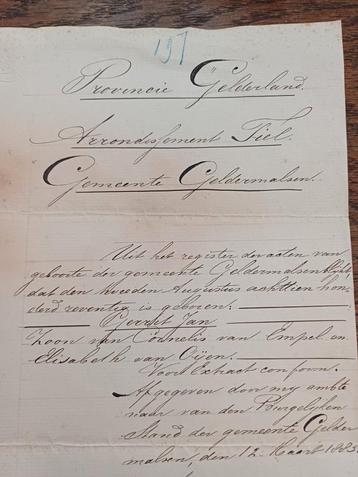 197
Provincie Gelderland.
Arrondissement Tiel.
Gemeente Geldermalsen.
Uit het register der acten van
geboorte der gemeente Geldermalsen blijkt,
dat den tweeden Augustus achttien hon-
derd zeventig is geboren:
Gerrit Jan
Zoon van Cornelis van Empel en
Elisabeth van Oijen.
Voor Extract conform.
Afgegeven door mij ambte
naar van den Burgelyken
Stand der gemeente Gelder
malsen, den 12 Maart 1883.